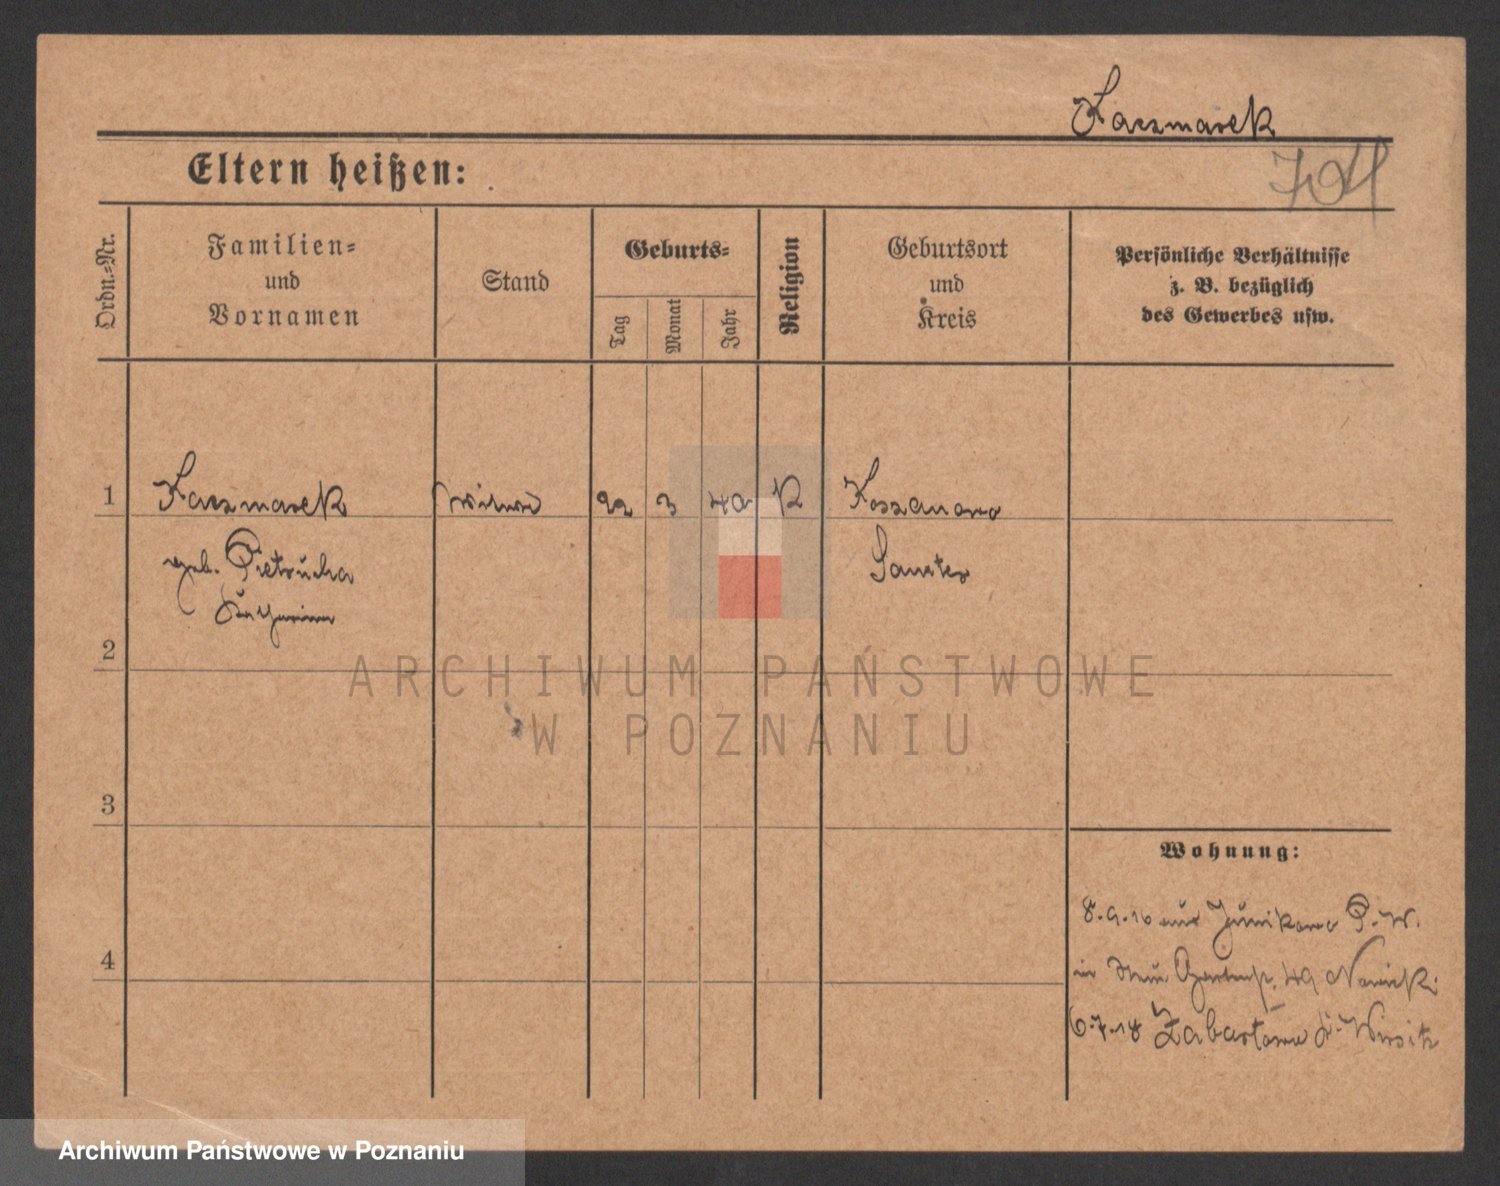 Kaczmarek
Eltern heißen:
Ordn.=Nr.
Familien=
und
Vornamen
Stand
Geburts=
Tag
Monat
Jahr
Religion
Geburtsort
und
Kreis
Persönliche Verhältnisse
z. B. bezüglich
des Gewerbes usw.
1
Kaczmarek
Witwe
22
3
40
K
Koszanowo
geb. Pietrucha
Katharina
Samter
2
ARCHIWUM PAŃSTWOWE
W POZNANIU
3
Wohnung:
8.9.16 aus Junikowo P.W.
in Neue Gartenstr. 49 Nowicki
4
6.7.18 Zabartowo K. Wirsitz
Archiwum Państwowe w Poznaniu